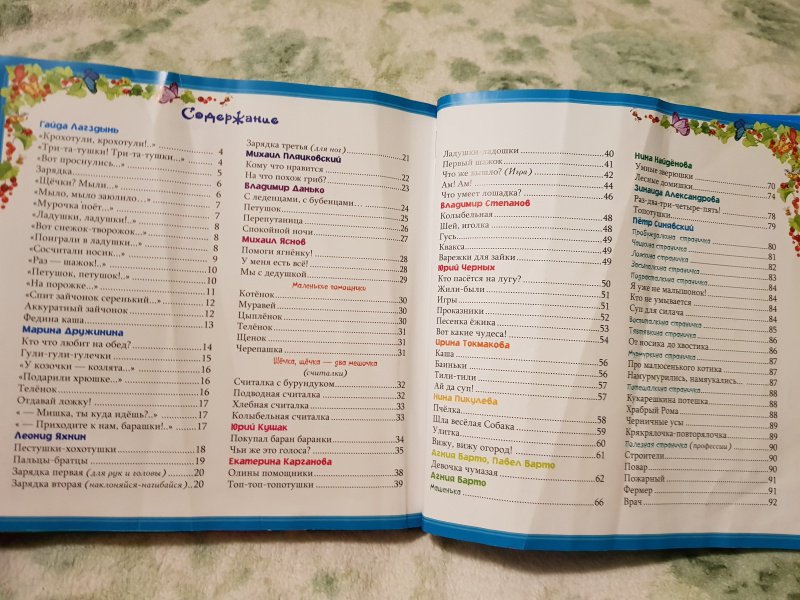 Содержание
Гайда Лагздынь
«Крохотули, крохотули!..» 4
«Три-та-тушки! Три-та-тушки...» 4
«Вот проснулись...» 5
Зарядка 5
«Щёчки? Мыли...» 6
«Мыло, мыло заюлило...» 6
«Мурочка поёт...» 7
«Ладушки, ладушки!..» 7
«Вот снежок-творожок...» 8
«Поиграли в ладушки...» 8
«Сосчитали носик...» 9
«Раз — шажок!..» 9
«Петушок, петушок!..» 10
«На порожке...» 10
«Спит зайчонок серенький...» 11
Аккуратный зайчонок 12
Федина каша 12
13
Марина Дружинина
Кто что любит на обед? 14
Гули-гули-гулечки 15
«У козочки — козлята...» 16
«Подарили хрюшке...» 16
Телёнок 16
Отдавай ложку! 17
« — Мишка, ты куда идёшь?..» 17
« — Приходите к нам, барашки!..» 17
Леонид Яхнин
Пестушки-хохотушки 18
Пальцы-братцы 19
Зарядка первая (для рук и головы) 20
Зарядка вторая (наклоняйся-нагибайся) 20
Зарядка третья (для ног) 21
Михаил Пляцковский
Кому что нравится 22
На что похож гриб? 23
Владимир Данько
С леденцами, с бубенцами 24
Петушок 25
Перепутаница 26
Спокойной ночи 27
Михаил Яснов
Помоги ягнёнку! 28
У меня есть всё! 28
Мы с дедушкой 29
Маленькие помощники
Котёнок 30
Муравей 30
Цыплёнок 30
Телёнок 31
Щенок 31
Черепашка 31
Щёчка, щёчка — два мешочка
(считалки)
Считалка с бурундуком 32
Подводная считалка 32
Хлебная считалка 33
Колыбельная считалка 33
Юрий Кушак
Покупал баран баранки 34
Чьи же это голоса? 35
Екатерина Карганова
Олины помощники 38
Топ-топ-топотушки 39
Ладушки-ладошки 40
Первый шажок 41
Что же вышло? (Игра) 42
Ам! Ам! 44
Что умеет лошадка? 46
Владимир Степанов
Колыбельная 48
Шей, иголка 48
Гусь 49
Квакса 49
Варежки для зайки 49
Юрий Черных
Кто пасётся на лугу? 50
Жили-были 51
Игры 51
Проказники 52
Песенка ёжика 53
Вот какие чудеса! 54
Ирина Токмакова
Каша 56
Баиньки 56
Тили-тили 57
Ай да суп! 57
Нина Пикулева
Пчёлка 58
Шла весёлая Собака 59
Улитка 60
Вижу, вижу огород! 61
Агния Барто, Павел Барто
Девочка чумазая 62
Агния Барто
Машенька 66
Нина Найдёнова
Умные зверюшки 70
Лесные домишки 74
Зинаида Александрова
Раз-два-три-четыре-пять! 78
Топотушки 79
Пётр Синявский
80
81
82
83
84
Я уже не малышонок! 84
Кто не умывается 84
Суп для силача 84
85
86
От носика до хвостика 86
Мурчуркина страничка 87
Про малюсенького котика 87
Намурмурились, намяукались 87
88
Кукарешкина потешка 88
Храбрый Рома 88
Черничные усы 89
Крякрялочка-повторялочка 89
Полезная страничка (профессии) 90
Строители 90
Повар 90
Пожарный 91
Фермер 91
Врач 92